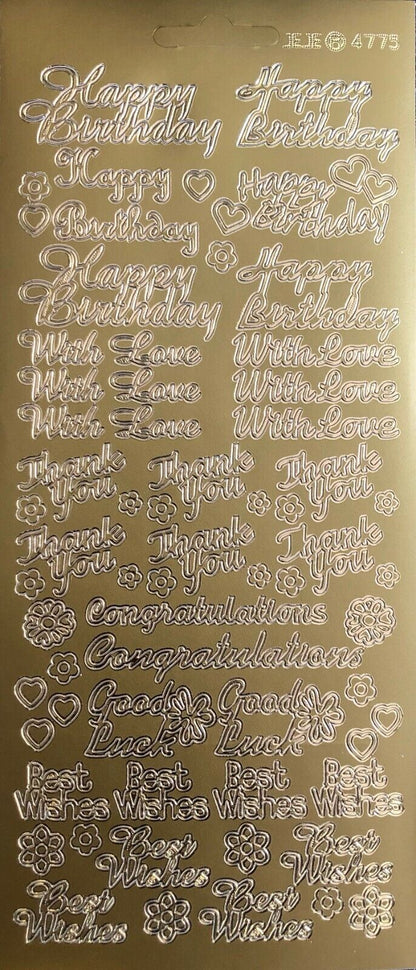 JEJE ® 4775
Happy Happy
Birthday Birthday
Happy Happy
Birthday Birthday
Happy Happy
Birthday Birthday
With Love With Love
With Love With Love
With Love With Love
Thank Thank Thank
You You You
Thank Thank Thank
You You You
Congratulations
Congratulations
Good Good
Luck Luck
Best Best Best Best
Wishes Wishes Wishes Wishes
Best Best
Wishes Wishes
Best Best
Wishes Wishes